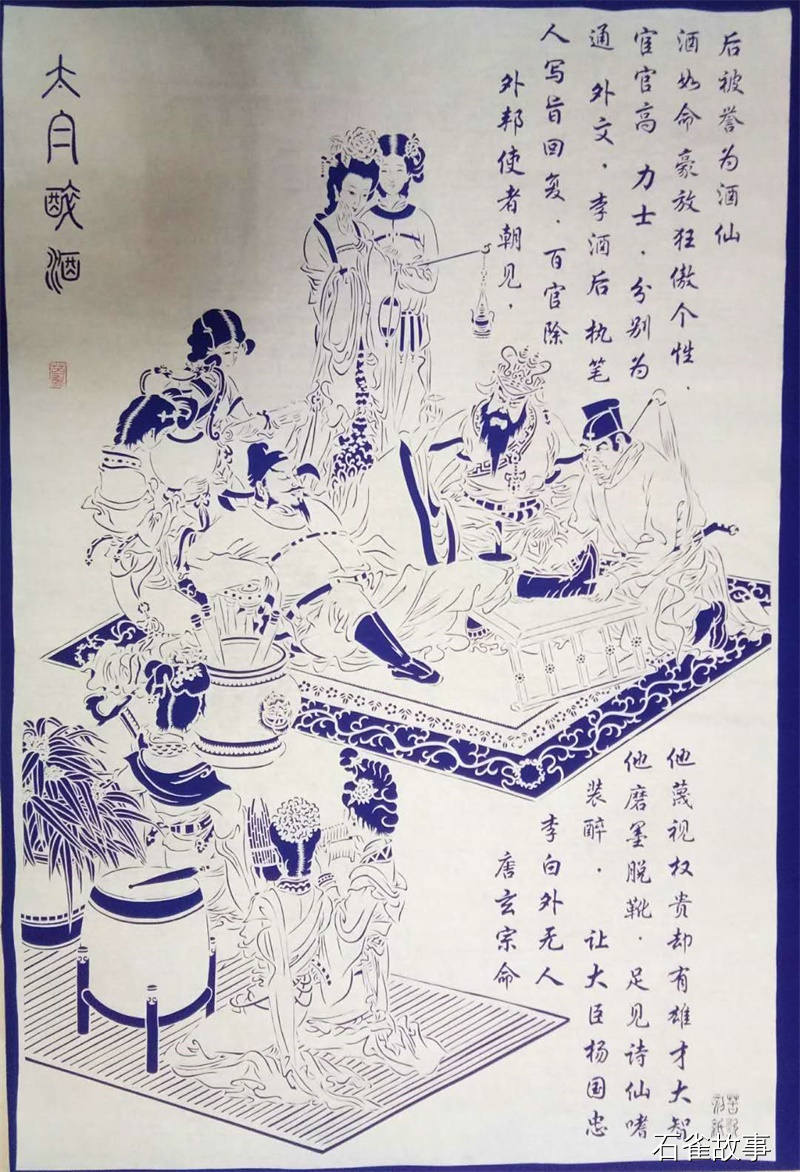 太白醉酒
外邦使者朝见.
唐玄宗命
人写旨回复.百官除
李白外无人
通 外文.李酒后执笔
装醉. 让大臣杨国忠
宦官高 力士.分别为
他磨墨脱靴.足见诗仙嗜
酒如命豪放狂傲个性.
他蔑视权贵却有雄才大智
后被誉为酒仙
石雀故事